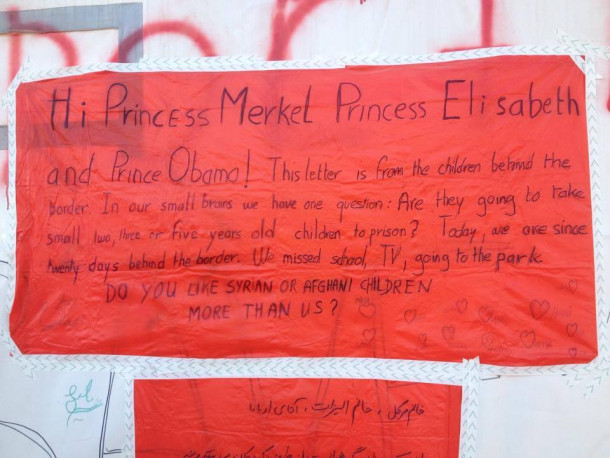 Hi Princess Merkel Princess Elisabeth
and Prince Obama! This letter is from the children behind the
border. In our small brains we have one question: Are they going to take
small two, three or five years old children to prison? Today, we are since
twenty days behind the border. We missed school, TV, going to the park.
DO YOU LIKE SYRIAN OR AFGHANI CHILDREN
MORE THAN US?
خانم مرکل، خانم الیزابت، آقای اوباما